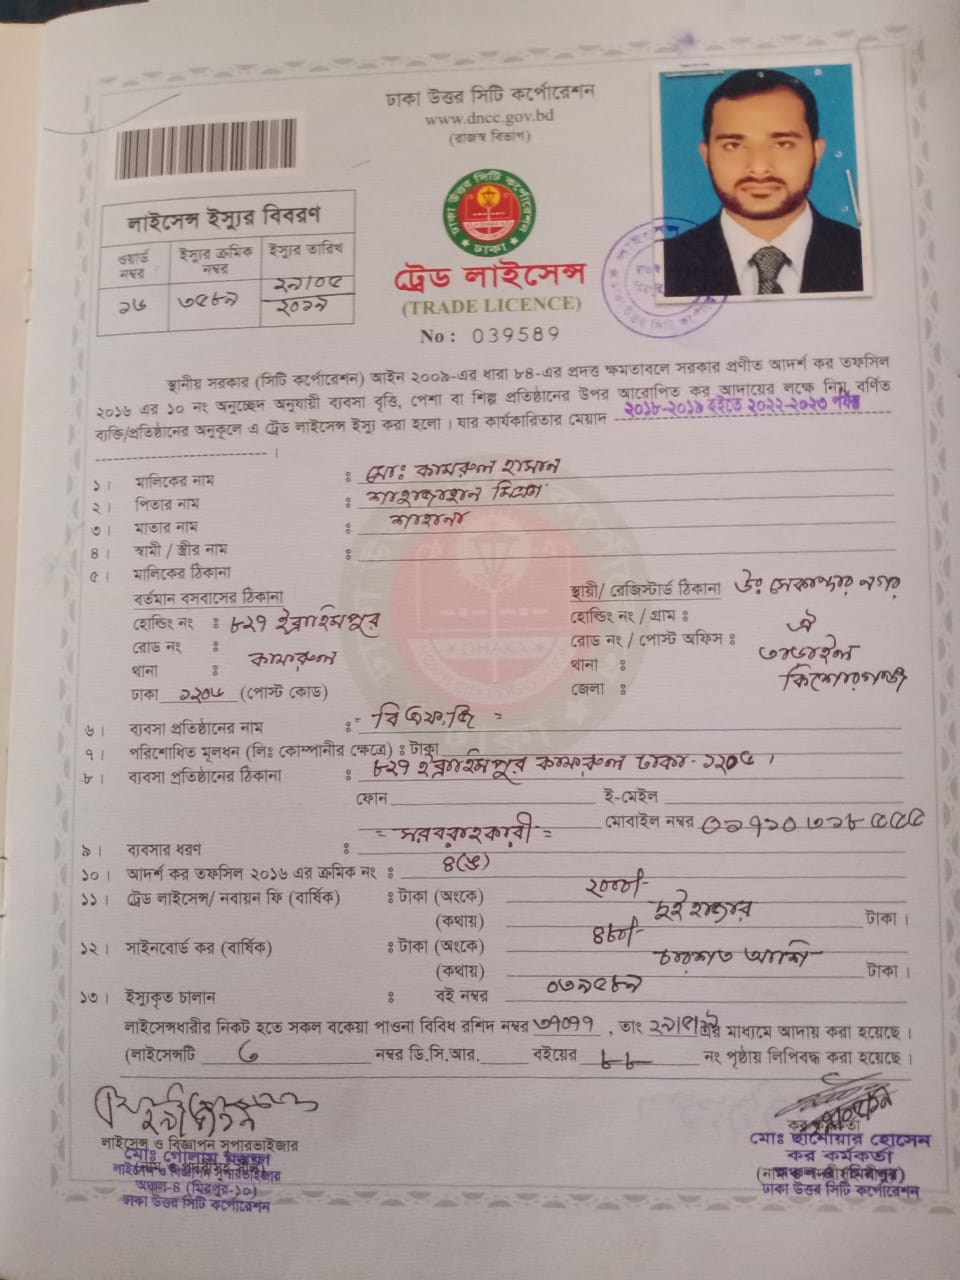 ঢাকা উত্তর সিটি কর্পোরেশন
www.dncc.gov.bd
(রাজস্ব বিভাগ)
লাইসেন্স ইস্যুর বিবরণ
ওয়ার্ড নম্বর ইস্যুর ক্রমিক নম্বর ইস্যুর তারিখ
১৬ ৩৫৮৯ ২৯/০৫ ২০১৯
ঢাকা উত্তর সিটি কর্পোরেশন
ঢাকা
ট্রেড লাইসেন্স
(TRADE LICENCE)
No : 039589
স্থানীয় সরকার (সিটি কর্পোরেশন) আইন ২০০৯-এর ধারা ৮৪-এর প্রদত্ত ক্ষমতাবলে সরকার প্রণীত আদর্শ কর তফসিল
২০১৬ এর ১০ নং অনুচ্ছেদ অনুযায়ী ব্যবসা বৃত্তি, পেশা বা শিল্প প্রতিষ্ঠানের উপর আরোপিত কর আদায়ের লক্ষে নিম্ন বর্ণিত
ব্যক্তি/প্রতিষ্ঠানের অনুকূলে এ ট্রেড লাইসেন্স ইস্যু করা হলো । যার কার্যকারিতার মেয়াদ ২০১৮-২০১৯ হইতে ২০২২-২০২৩ পর্যন্ত
।
১। মালিকের নাম : মোঃ কামরুল হাসান
২। পিতার নাম : শাহজাহান মিয়া
৩। মাতার নাম : শাহানা
৪। স্বামী / স্ত্রীর নাম :
৫। মালিকের ঠিকানা
বর্তমান বসবাসের ঠিকানা
হোল্ডিং নং : ৮২৭ ইব্রাহিমপুর
রোড নং :
থানা : কাফরুল
ঢাকা ১২০৬ (পোস্ট কোড)
স্থায়ী/ রেজিস্টার্ড ঠিকানা উঃ সেকান্দার নগর
হোল্ডিং নং / গ্রাম :
রোড নং / পোস্ট অফিস : ঐ
থানা : তাড়াইল
জেলা : কিশোরগঞ্জ
৬। ব্যবসা প্রতিষ্ঠানের নাম :
৭। পরিশোধিত মূলধন (লিঃ কোম্পানীর ক্ষেত্রে) : টাকা
৮। ব্যবসা প্রতিষ্ঠানের ঠিকানা : ৮২৭ ইব্রাহিমপুর কাফরুল ঢাকা-১২০৬ ।
ফোন ই-মেইল
মোবাইল নম্বর ০১৭১০৬১৮৫৫৫
৯। ব্যবসার ধরণ : = সরবরাহকারী =
১০। আদর্শ কর তফসিল ২০১৬ এর ক্রমিক নং : ৪(ঙ)
১১। ট্রেড লাইসেন্স/ নবায়ন ফি (বার্ষিক) : টাকা (অংকে) ২০০০/-
(কথায়) দুই হাজার টাকা ।
১২। সাইনবোর্ড কর (বার্ষিক) : টাকা (অংকে) ৪৮০/-
(কথায়) চারশত আশি টাকা ।
১৩। ইস্যুকৃত চালান : বই নম্বর ০৩৯৫৮৯
লাইসেন্সধারীর নিকট হতে সকল বকেয়া পাওনা বিবিধ রশিদ নম্বর ৩৭০৭৭ , তাং এর মাধ্যমে আদায় করা হয়েছে ।
(লাইসেন্সটি ৬ নম্বর ডি.সি.আর. বইয়ের ৮৮ নং পৃষ্ঠায় লিপিবদ্ধ করা হয়েছে ।
লাইসেন্স ও বিজ্ঞাপন সুপারভাইজার
মোঃ গোলাম
লাইসেন্স ও বিজ্ঞাপন সুপারভাইজার
অঞ্চল-৪ (মিরপুর-১০)
ঢাকা উত্তর সিটি কর্পোরেশন
কর কর্মকর্তা
মোঃ হোসেন
কর কর্মকর্তা
ঢাকা উত্তর সিটি কর্পোরেশন